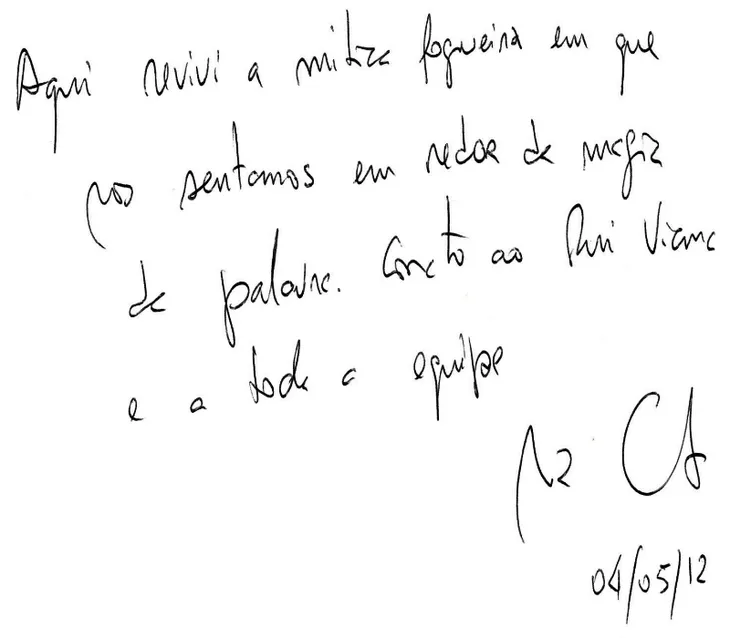 Aqui revivi a mítica fogueira em que
nos sentamos em redor da magia
da palavra. Grato ao Rui Viana
e a toda a equipe
04/05/12